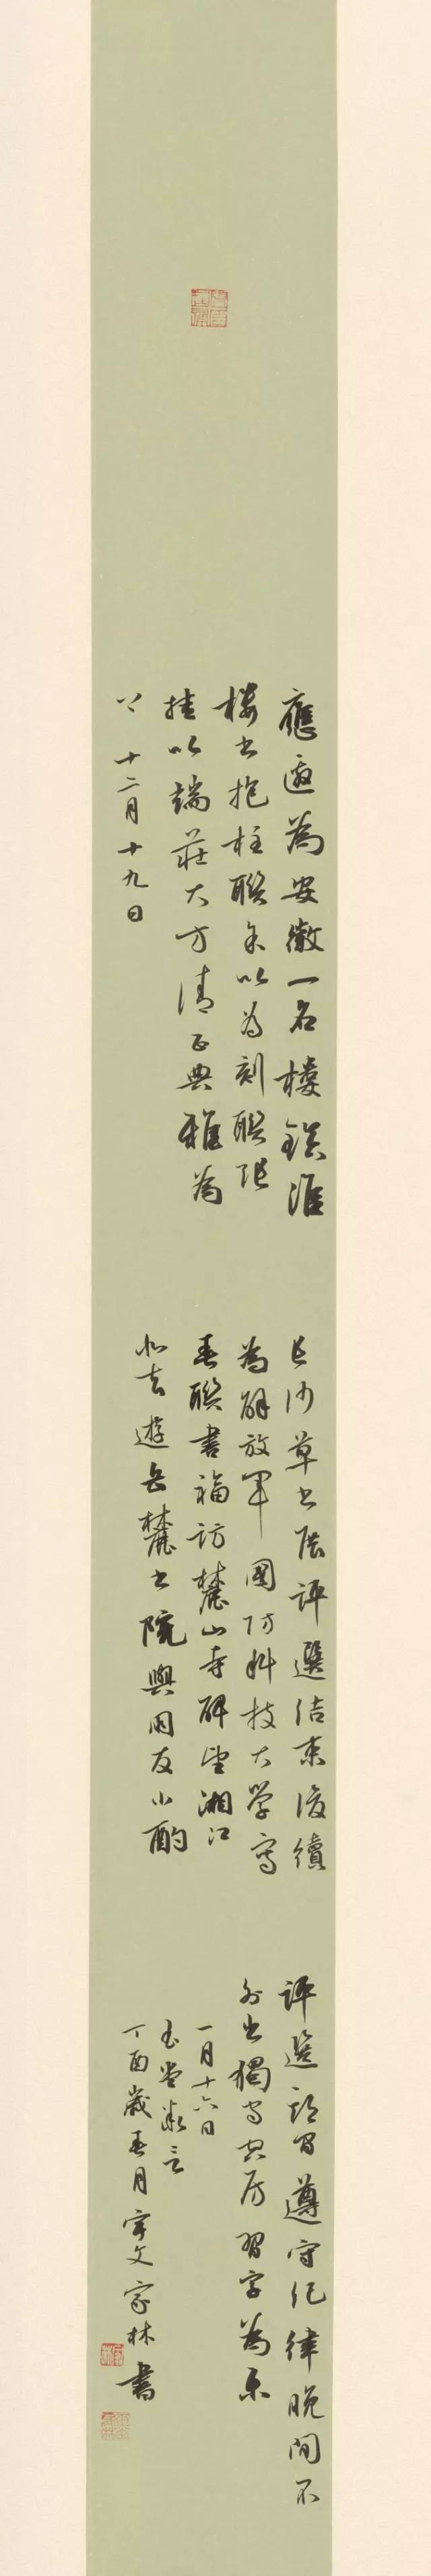 應邀為安徽一名樓鎮淮
樓書抱柱聯余以為刻聯張
挂以端莊大方清正典雅為
上 十二月十九日
長沙草書展評選結束後續
為解放軍國防科技大學寫
春聯書福訪麓山寺碑望湘江
北去遊岳麓書院與同友小酌
評選期間遵守紀律晚間不
外出獨守空房習字為樂
一月十六日
玉堂散言
丁酉歲春月宇文家林書